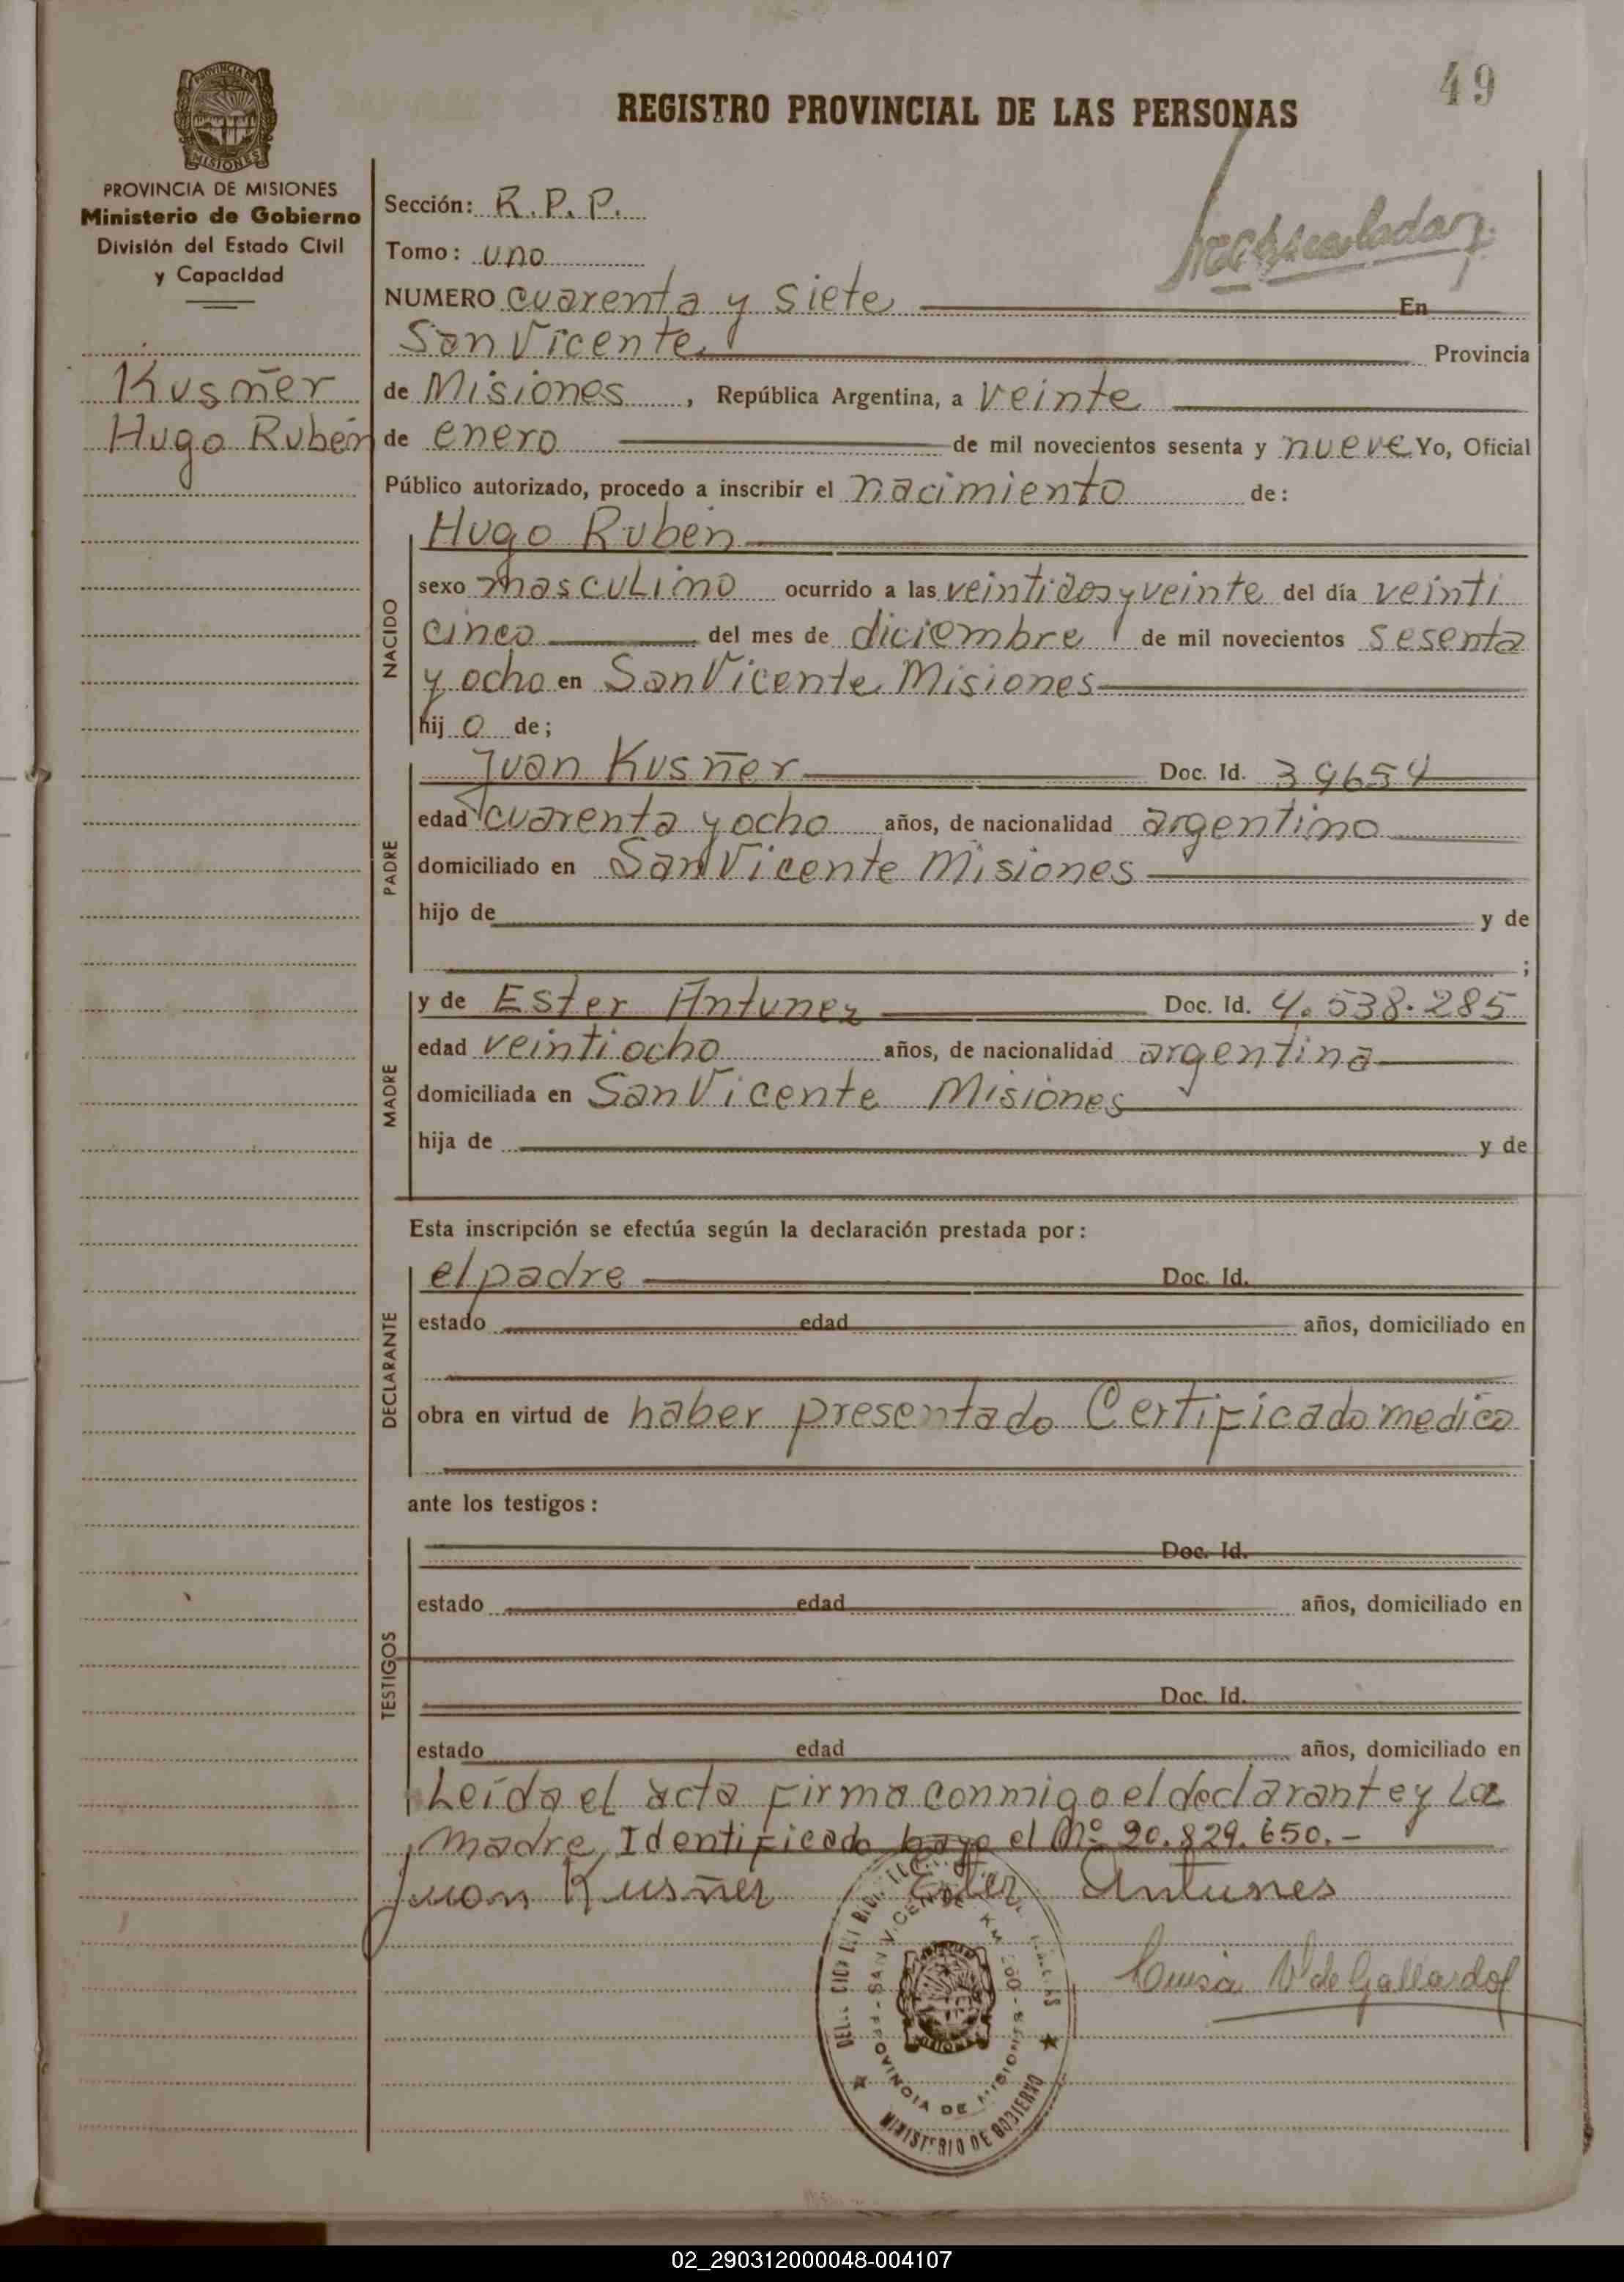 49
REGISTRO PROVINCIAL DE LAS PERSONAS
PROVINCIA DE MISIONES
Ministerio de Gobierno
División del Estado Civil
y Capacidad
Kusñer
Hugo Rubén
Sección: R.P.P.
Tomo: uno
NUMERO cuarenta y siete En
San Vicente Provincia
de Misiones, República Argentina, a veinte
de enero de mil novecientos sesenta y nueve Yo, Oficial
Público autorizado, procedo a inscribir el nacimiento de:
NACIDO
Hugo Rubén
sexo masculino ocurrido a las veintidos y veinte del día veinti
cinco del mes de diciembre de mil novecientos sesenta
y ocho en San Vicente Misiones
hijo de;
PADRE
Juan Kusñer Doc. Id. 39654
edad cuarenta y ocho años, de nacionalidad argentino
domiciliado en San Vicente Misiones
hijo de y de
;
MADRE
y de Ester Antunez Doc. Id. 4.538.285
edad veintiocho años, de nacionalidad argentina
domiciliada en San Vicente Misiones
hija de y de
Esta inscripción se efectúa según la declaración prestada por:
DECLARANTE
el padre Doc. Id.
estado edad años, domiciliado en
obra en virtud de haber presentado Certificado medico
ante los testigos:
TESTIGOS
Doc. Id.
estado edad años, domiciliado en
Doc. Id.
estado edad años, domiciliado en
Leída el acta firma conmigo el declarante y La
madre, Identificado bayo el Nº 20.829.650.-
Juan Kusñer Ester Antunes
Luisa V de Gallardo
SAN VICENTE - KM
PROVINCIA DE MISIONES
MINISTERIO DE GOBIERNO
02_290312000048-004107